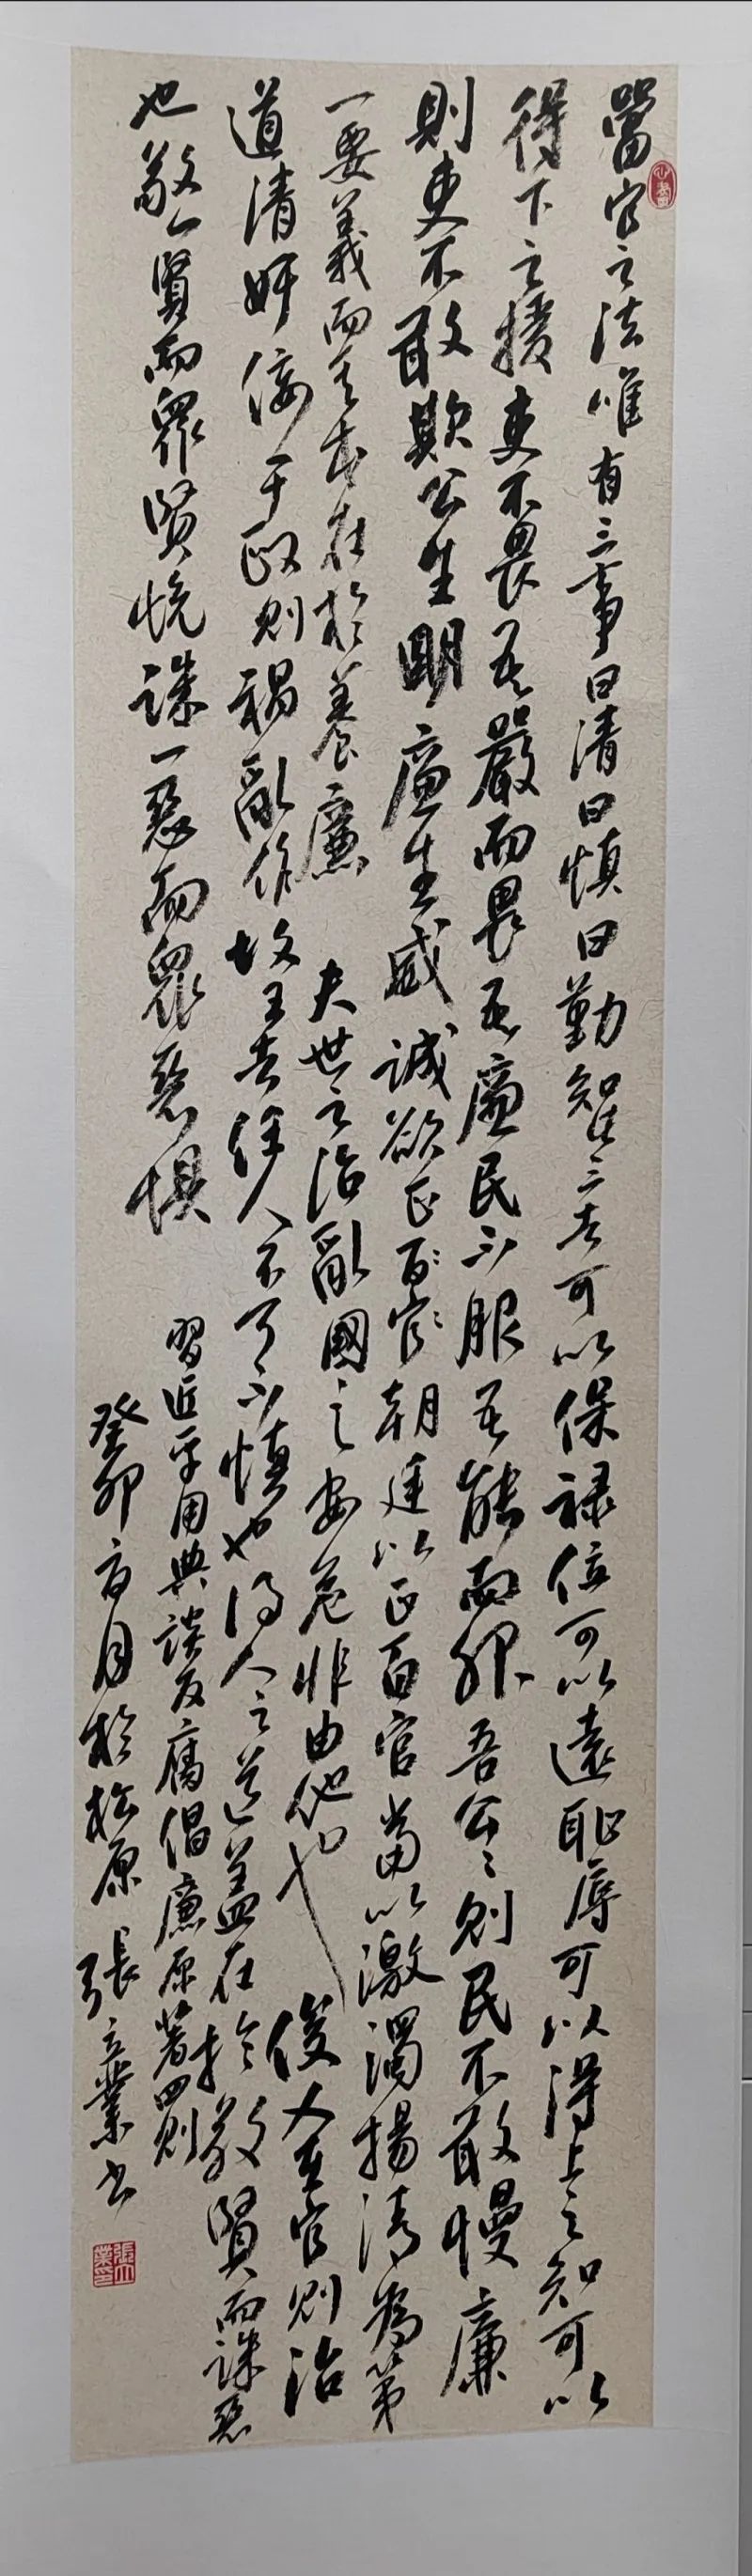 當官之法唯有三事曰清曰慎曰勤知此三者可以保祿位可以遠恥辱可以得上之知可以
得下之援吏不畏吾嚴而畏吾廉民不服吾能而服吾公公則民不敢慢廉
則吏不敢欺公生明廉生威誠欲正百官朝廷以正百官當以激濁揚清為第
一要義而其本在於養廉 夫世之治亂國之安危非由他也俊乂在官則治
道清奸佞干政則禍亂作故王者任人不可不慎也得人之道蓋在於敬賢而誅惡
也敬一賢而眾賢悅誅一惡而眾惡懼
習近平用典談反腐倡廉原著四則
癸卯 月於松原 張立業書
張立業印